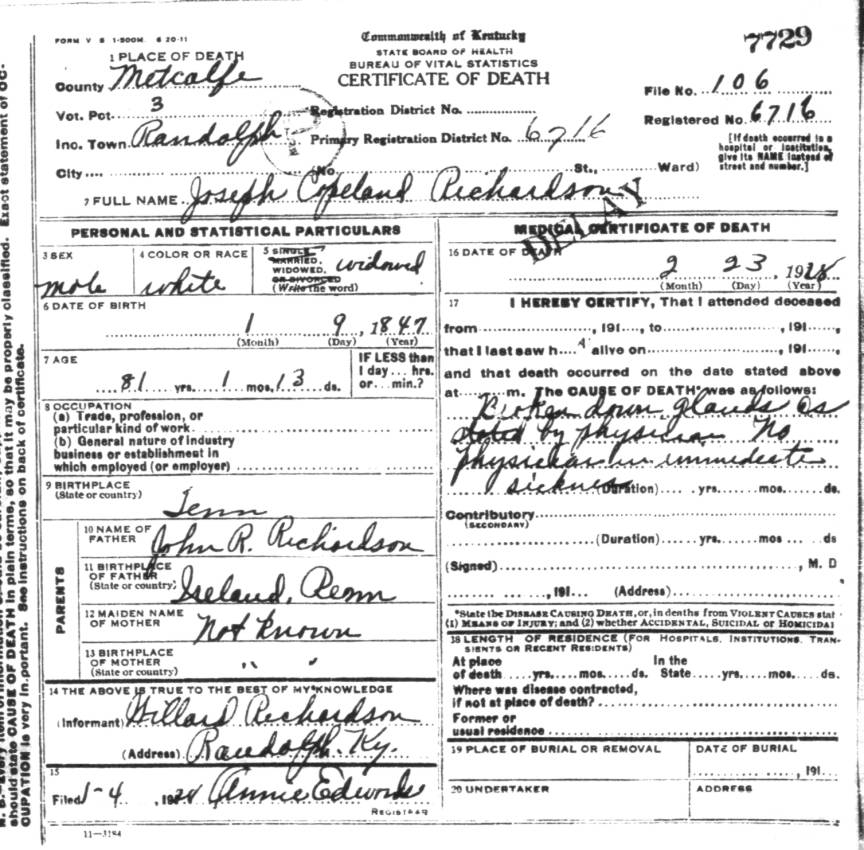 FORM V S 1-500M. 6 20-11
Commonwealth of Kentucky
7729
STATE BOARD OF HEALTH
BUREAU OF VITAL STATISTICS
CERTIFICATE OF DEATH
1 PLACE OF DEATH
County Metcalfe
File No. 106
Vot. Pct. 3
Registration District No.
Registered No. 6716
Inc. Town Randolph
Primary Registration District No. 6716
[If death occurred in a hospital or institution, give its NAME instead of street and number.]
City (No. St., Ward)
7 FULL NAME Joseph Copeland Richardson
DELAY
PERSONAL AND STATISTICAL PARTICULARS
3 SEX male
4 COLOR OR RACE white
5 SINGLE, MARRIED, WIDOWED, OR DIVORCED (Write the word) widowed
6 DATE OF BIRTH
1 9, 1847
(Month) (Day) (Year)
7 AGE
81 yrs. 1 mos. 13 ds.
IF LESS than 1 day... hrs. or... min.?
8 OCCUPATION
(a) Trade, profession, or
particular kind of work
(b) General nature of industry
business or establishment in
which employed (or employer)
9 BIRTHPLACE
(State or country)
Tenn
PARENTS
10 NAME OF FATHER John R. Richardson
11 BIRTHPLACE OF FATHER (State or country)
12 MAIDEN NAME OF MOTHER Not known
13 BIRTHPLACE OF MOTHER (State or country) " "
14 THE ABOVE IS TRUE TO THE BEST OF MY KNOWLEDGE
(Informant) Richardson
(Address) Randolph. Ky.
15
Filed 1-4, 19 Annie Edwards
REGISTRAR
11—3184
MEDICAL CERTIFICATE OF DEATH
16 DATE OF DEATH
2 23, 19
(Month) (Day) (Year)
17 I HEREBY CERTIFY, That I attended deceased
from , 191 , to , 191 ,
that I last saw h alive on , 191 ,
and that death occurred on the date stated above
at m. The CAUSE OF DEATH* was as follows:
Broken down glands as
stated by physician No
physician in immediate
sickness (Duration) yrs. mos. ds.
Contributory
(SECONDARY)
(Duration) yrs. mos ds
(Signed) , M. D
, 191 (Address)
*State the DISEASE CAUSING DEATH, or, in deaths from VIOLENT CAUSES stat
(1) MEANS OF INJURY; and (2) whether ACCIDENTAL, SUICIDAL or HOMICIDAL
18 LENGTH OF RESIDENCE (FOR HOSPITALS, INSTITUTIONS, TRAN-
SIENTS OR RECENT RESIDENTS)
At place of death yrs. mos. ds. In the State yrs. mos. ds.
Where was disease contracted,
if not at place of death?
Former or
usual residence
19 PLACE OF BURIAL OR REMOVAL
DATE OF BURIAL
, 191
20 UNDERTAKER
ADDRESS
should state CAUSE OF DEATH in plain terms, so that it may be properly classified. Exact statement of OC-
CUPATION is very important. See instructions on back of certificate.